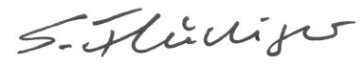 S. Flückiger